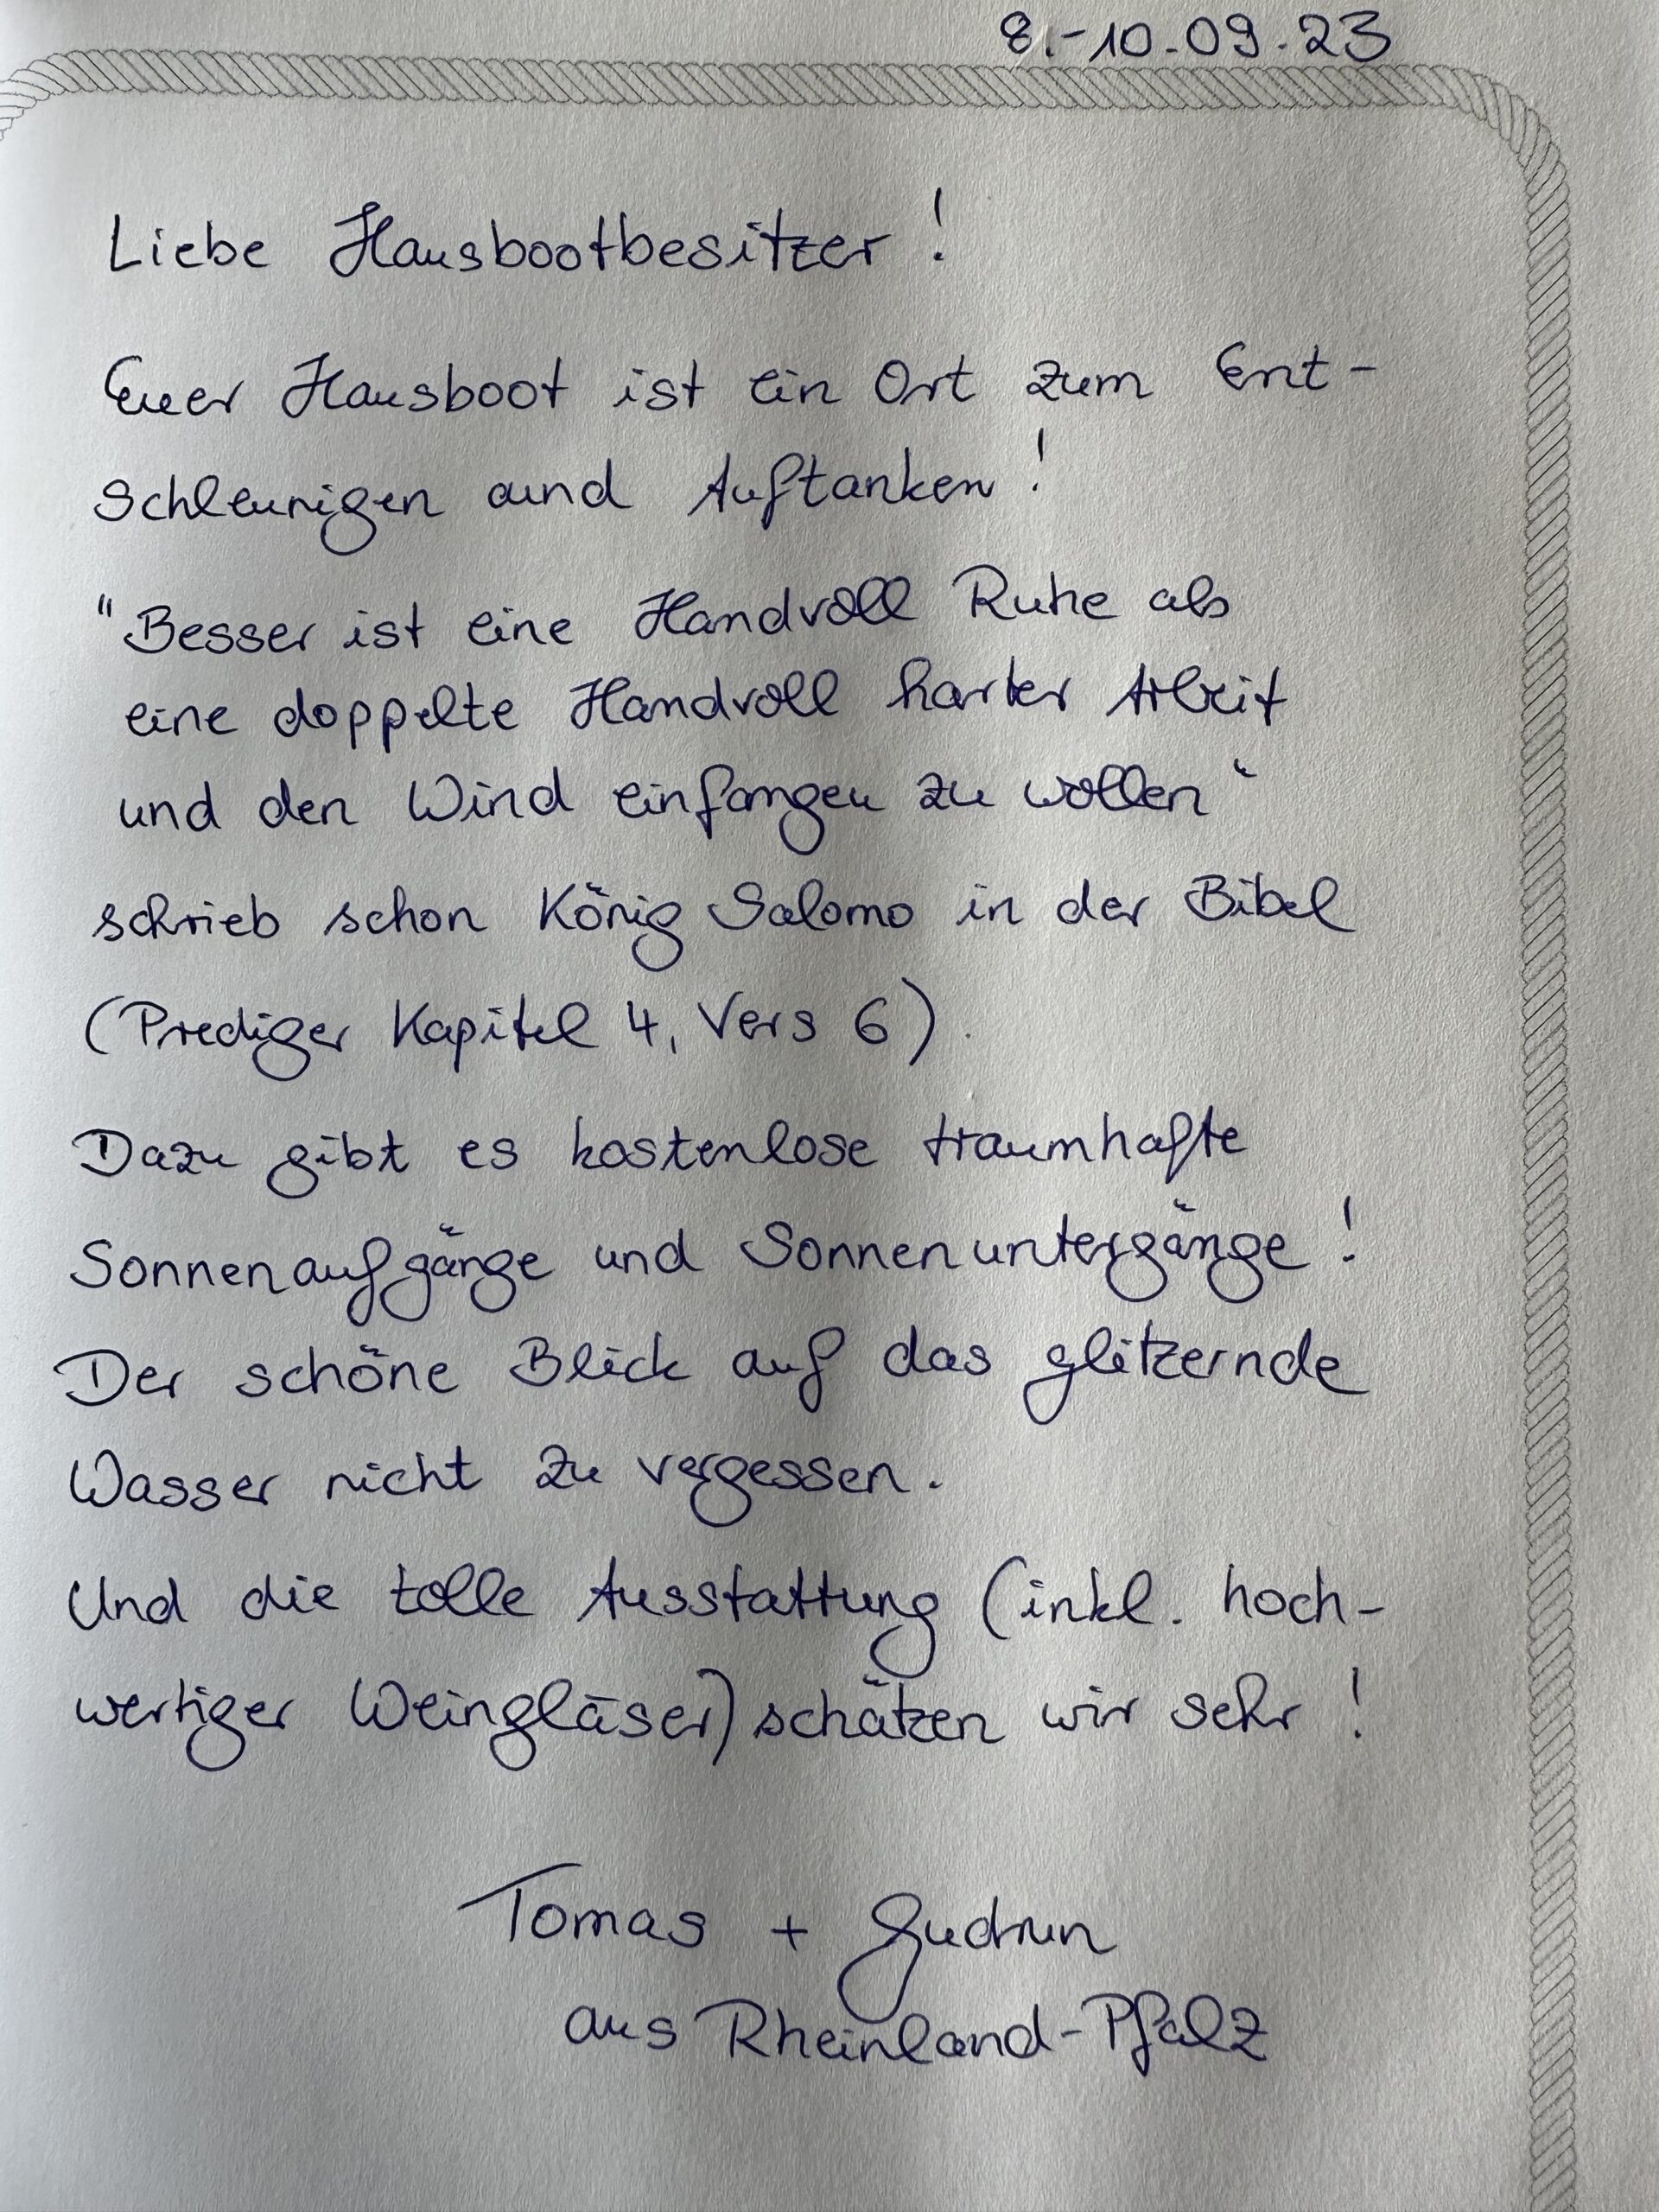 8.-10.09.23
Liebe Hausbootbesitzer!
Euer Hausboot ist ein Ort zum Ent-
schleunigen und Auftanken!
"Besser ist eine Handvoll Ruhe als
eine doppelte Handvoll harter Arbeit
und den Wind einfangen zu wollen"
schrieb schon König Salomo in der Bibel
(Prediger Kapitel 4, Vers 6).
Dazu gibt es kostenlose traumhafte
Sonnenaufgänge und Sonnenuntergänge!
Der schöne Blick auf das glitzernde
Wasser nicht zu vergessen.
Und die tolle Ausstattung (inkl. hoch-
wertiger Weingläser) schätzen wir sehr!
Tomas + Gudrun
aus Rheinland-Pfalz